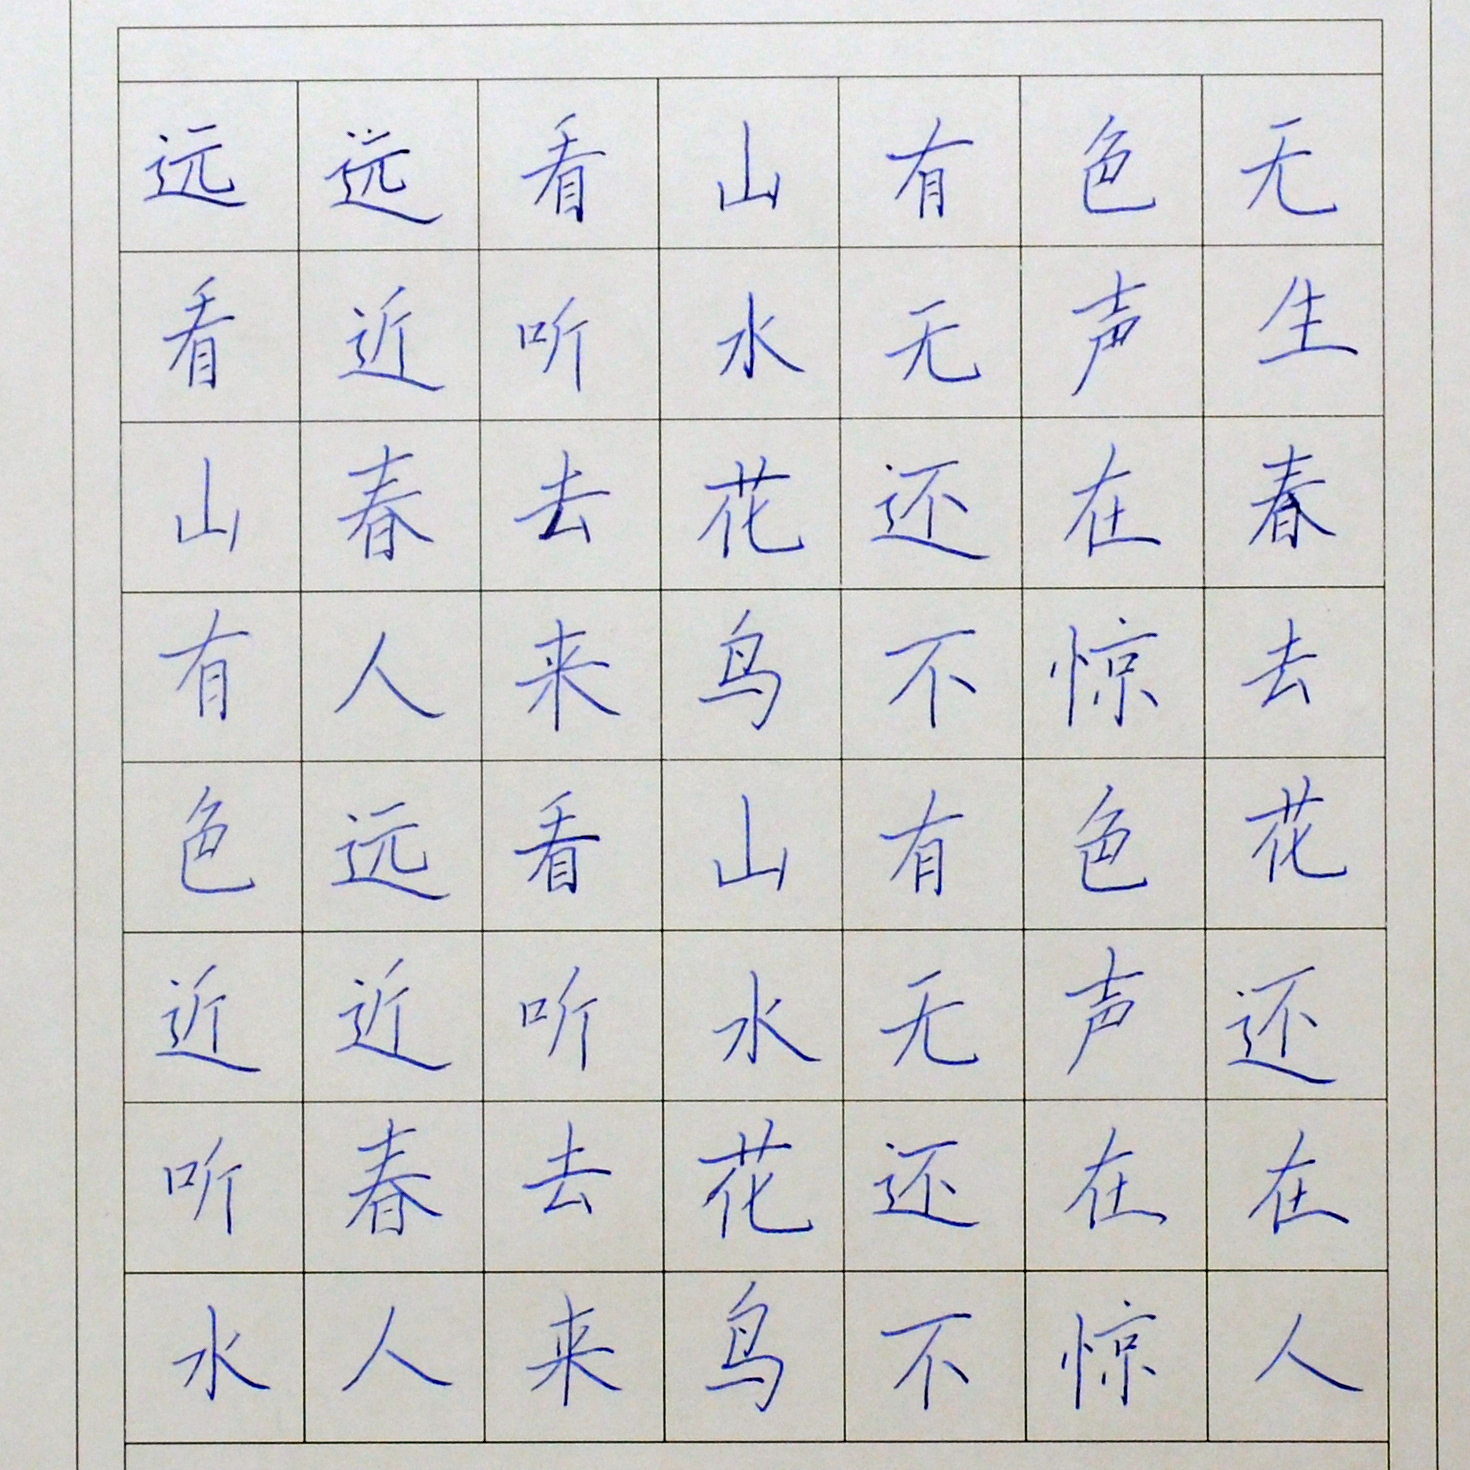 远远看山有色无
看近听水无声生
山春去花还在春
有人来鸟不惊去
色远看山有色花
近近听水无声还
听春去花还在在
水人来鸟不惊人